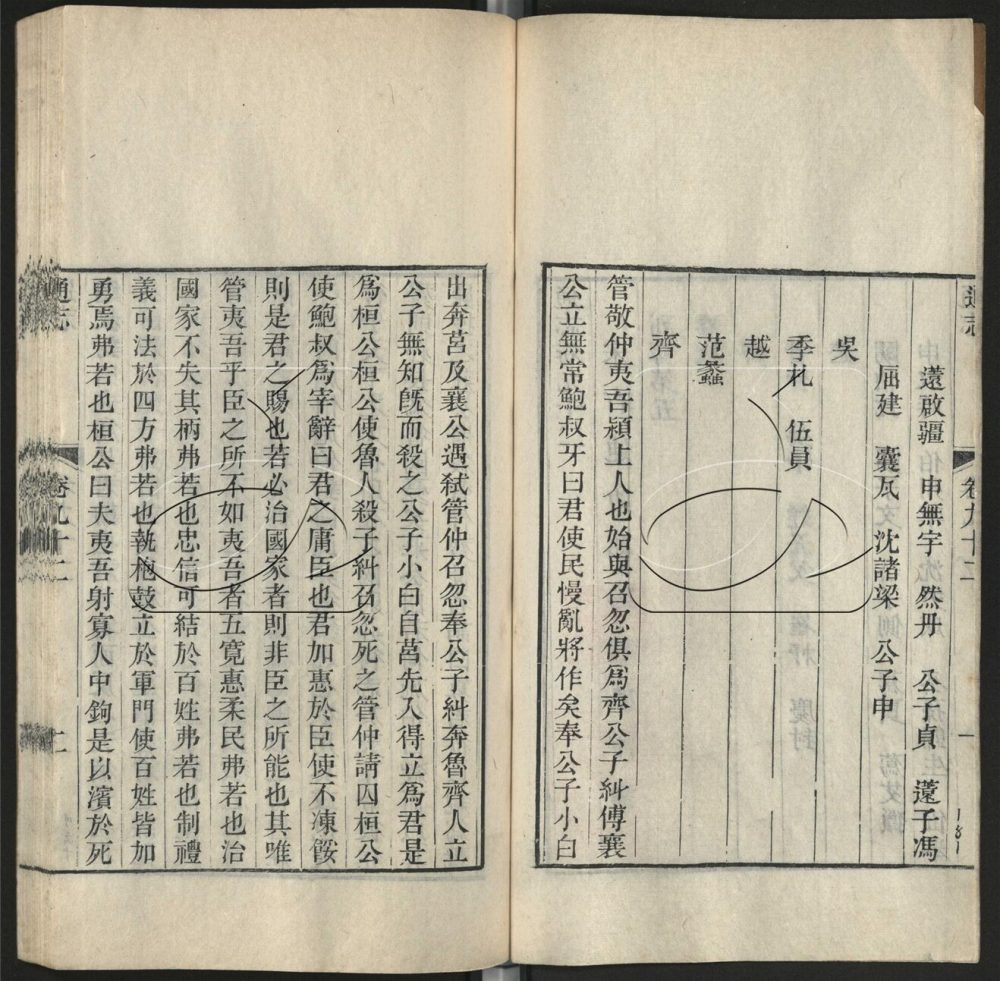 通志 卷九十二 一
薳啟疆 申無宇 然丹 公子貞 薳子馮
屈建 囊瓦 沈諸梁 公子申
吳
季札 伍員
越
范蠡
齊
管敬仲夷吾潁上人也始與召忽俱爲齊公子糾傅襄
公立無常鮑叔牙曰君使民慢亂將作矣奉公子小白
出奔莒及襄公遇弒管仲召忽奉公子糾奔魯齊人立
公子無知旣而殺之公子小白自莒先入得立爲君是
爲桓公桓公使魯人殺子糾召忽死之管仲請囚桓公
使鮑叔爲宰辭曰君之庸臣也君加惠於臣使不凍餒
則是君之賜也若必治國家者則非臣之所能也其唯
管夷吾乎臣之所不如夷吾者五寬惠柔民弗若也治
國家不失其柄弗若也忠信可結於百姓弗若也制禮
義可法於四方弗若也執枹鼓立於軍門使百姓皆加
勇焉弗若也桓公曰夫夷吾射寡人中鉤是以濱於死
通志 卷九十二 二